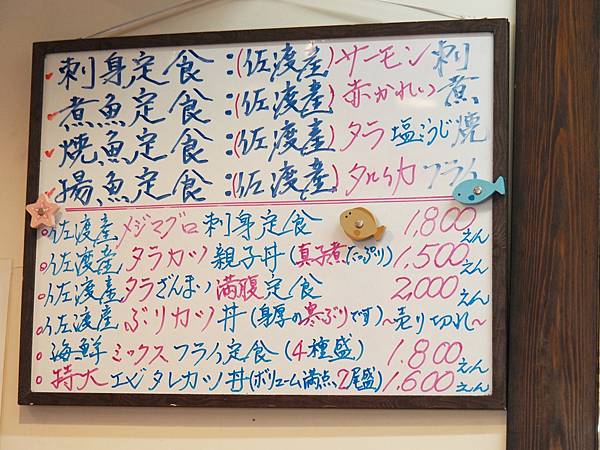 刺身定食:(佐渡産)サーモン刺
煮魚定食:(佐渡産)赤かれい煮
焼魚定食:(佐渡産)タラ塩こうじ焼
揚魚定食:(佐渡産)タルイカフライ
佐渡産メジマグロ刺身定食 1,800えん
佐渡産タラカツ親子丼(真子煮たっぷり)1,500えん
佐渡産タラざんまい満腹定食 2,000えん
佐渡産ぶりカツ丼(身厚の寒ぶりです)~売り切れ~
海鮮ミックスフライ定食(4種盛) 1,800えん
特大エビタレカツ丼(ボリューム満点、2尾盛)1,600えん